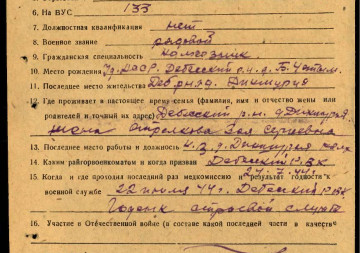 6. На ВУС 133
7. Должностная квалификация нет
8. Военное звание рядовой
9. Гражданская специальность колхозник
10. Место рождения Дебесский р-н, д.
11. Последнее место жительства Деб р-н д.
12. Где проживает в настоящее время семья (фамилия, имя и отчество жены или
родителей и точный их адрес) Дебесский р-н, д.
жена Сергеевна
13. Последнее место работы и должность
14. Каким райгорвоенкоматом и когда призван Дебесский РВК
27.7.44 г.
15. Когда и где проходил последний раз медкомиссию и результат годности к
военной службе 22 июля 44 г. Дебесский РВК
Годен к строевой службе
16. Участие в Отечественной войне (в составе какой последней части в качестве